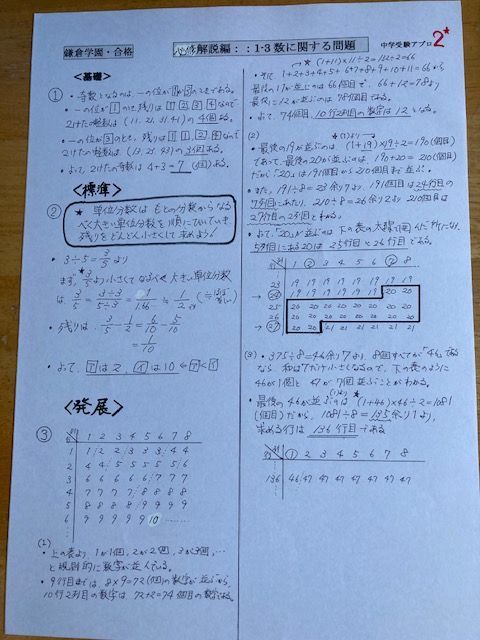 鎌倉学園・合格
解説編：：1-3 数に関する問題
中学受験アプロ 2
<基礎>
①
・一の位が1のとき、残りは
2けたの整数は (11, 21, 31, 41) の 4個ある。
・一の位が3のとき、残りは
・よって、2けたの奇数は 4+3=7 (個)ある。
<標準>
②
★ 単位分数は もとの分数から なる
べく大きい単位分数を 順にひいていき、
残りをどんどん小さくして 求めよう!
・3÷5=3/5より
まず、3/5より小さくてなるべく大きい単位分数
は 3/5=3÷3/5÷3=1/1.66…≒1/2
・残りは 3/5-1/2=6/10-5/10
=1/10
・よって、アは2、イは10 ←ア<イ
<発展>
③
行 列 1 2 3 4 5 6 7 8
1 1 2 2 3 3 3 4 4
2 4 4 5 5 5 5 5 6
3 6 6 6 6 6 7 7 7
4 7 7 7 7 8 8 8 8
5 8 8 8 8 9 9 9 9
6 9 9 9 9 9 10 ……
(1)
・上の表より、1が1個、2が2個、3が3個、…
と規則的に数字が並んでいる。
・9行目までは、8×9=72(個)の数字が並ぶから、
10行2列目の数字は、72+2=74個目の数字である。
(1+11)×11÷2=132÷2=66
・そして、1+2+3+4+5+6+7+8+9+10+11=66から
最後の11が並ぶのは66個目で、66+12=78より
最後に12が並ぶのは78個目である。
・よって、74個目、10行2列目の数字は12となる。
(2)
・最後の19が並ぶのは、(1+19)×19÷2=190(個目)
であって、最後の20が並ぶのは、190+20=210(個目)
だから「20」は191個目から210個目まで並ぶ。
・また、191÷8=23余り7より、191個目は24行目の
7列目にあたり、210÷8=26余り2より 210個目は
27行目の2列目とわかる。
・よって「20」が並ぶのは 下の表の太線で囲んだ所になり、
5列目にある20は 25行と26行目である。
行 列 1 2 3 4 5 6 7 8
23 19 19 19 19 19 19 19 19
24 19 19 19 19 19 19 20 20
25 20 20 20 20 20 20 20 20
26 20 20 20 20 20 20 20 20
27 20 20 21 21 21 21 21 21
(3)・375÷8=46余り7より、8個すべてが「46」である
なら、和は7だけ小さくなるので、下の表のように
46が1個と 47が 7個並ぶことがわかる。
・最後の46が並ぶのは (1+46)×46÷2=1081
(個目)だから、1081÷8=135余り1より、
求める行は 136行目である
行 列 1 2 3 4 5 6 7 8
136 46 47 47 47 47 47 47 47